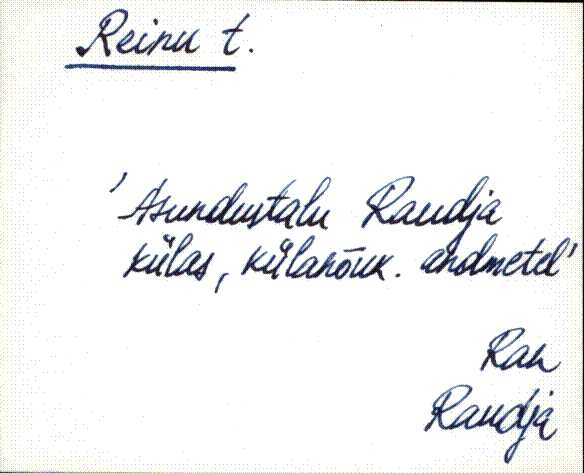 Reinu t.
'Asundustalu Raudja
külas, külanõuk. andmetel'
Ran
Raudja